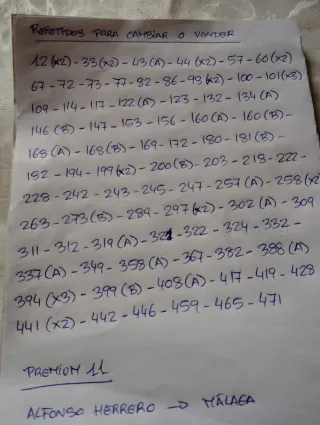 REPETIDOS PARA CAMBIAR O VENDER
12(x2)-33(x2)-43(A)-44(x2)-57-60(x2)
67-72-73-77-82-86-98(x2)-100-101(x3)
109-114-117-122(A)-123-132-134(A)
146(B)-147-153-156-160(A)-160(B)-
168(A)-168(B)-169-172-180-181(B)-
182-194-199(x2)-200(B)-203-218-222-
228-242-243-245-247-257(A)-258(x2
263-273(B)-289-297(x2)-302(A)-309
311-312-319(A)-321-322-324-332-
337(A)-349-358(A)-367-382-388(A)
394(x3)-399(B)-408(A)-417-419-428
441(x2)-442-446-459-465-471
PREMIUM 11
ALFONSO HERRERO -> MÁLAGA